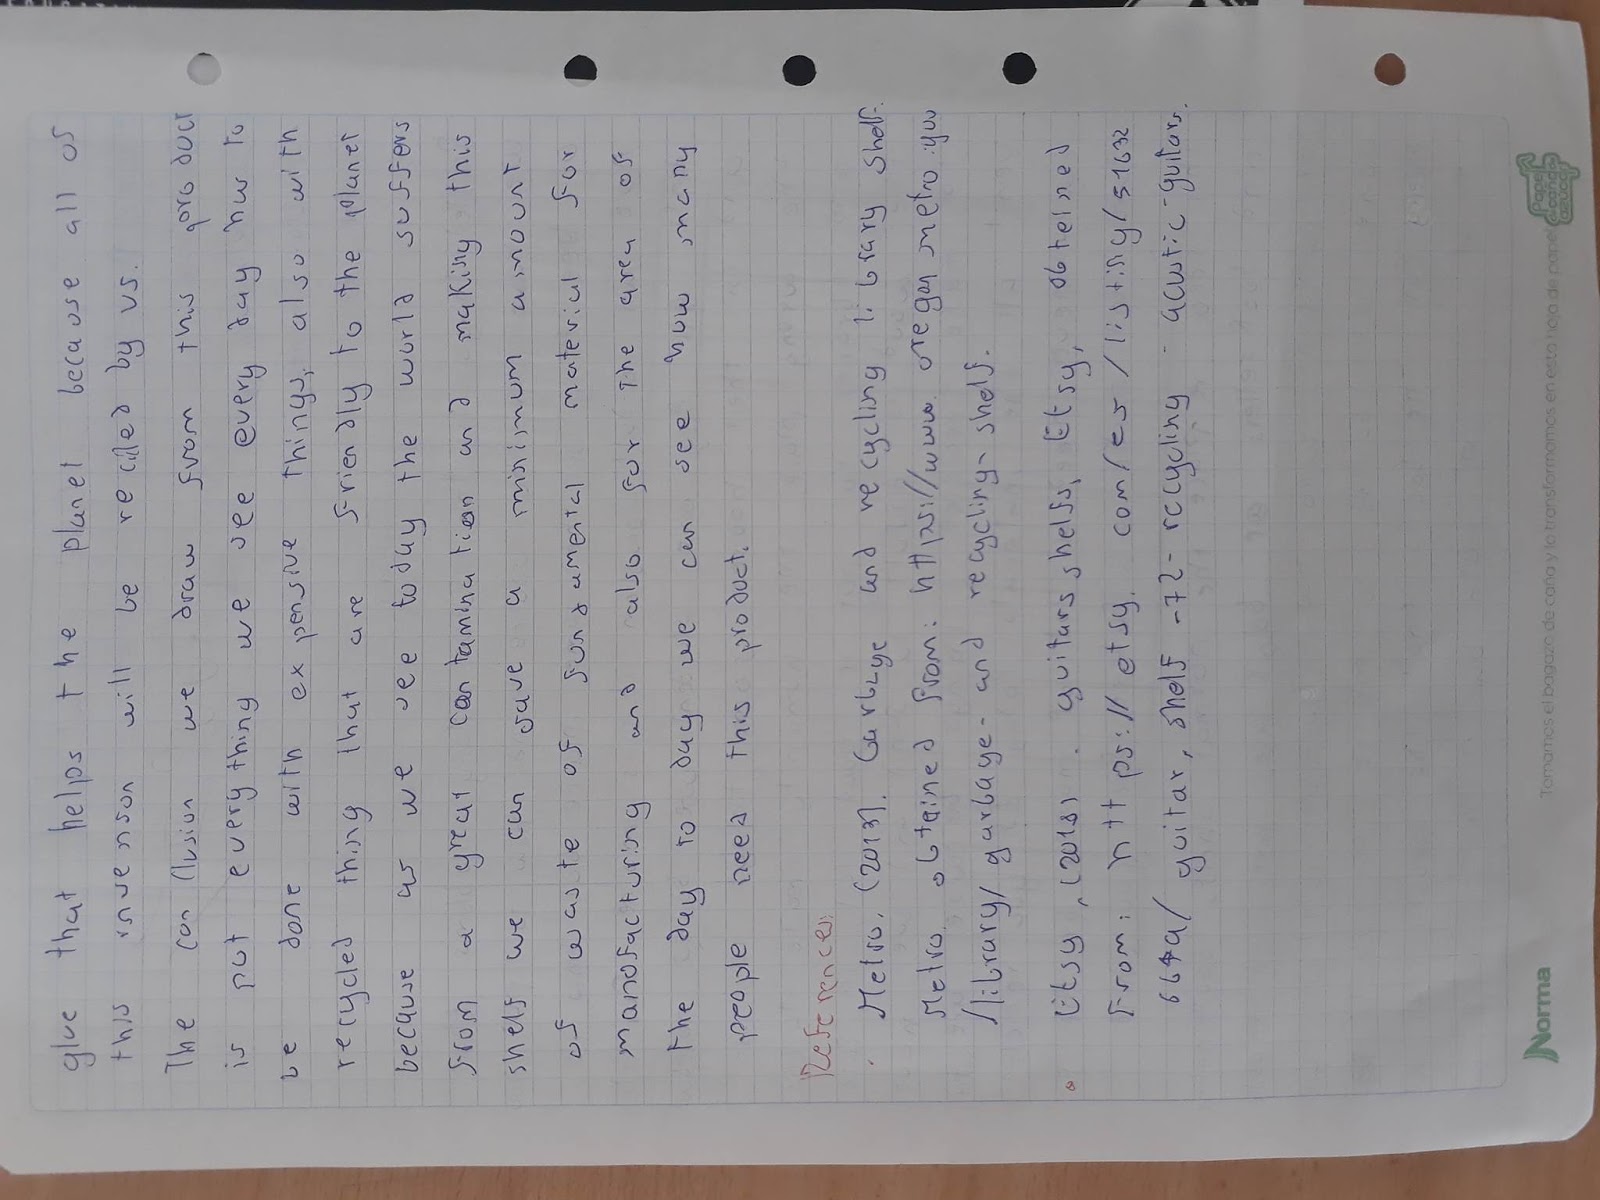 glue that helps the planet because all of
this invenson will be recicled by us.
The conclusion we draw from this product
is not everything we see every day has to
be done with expensive things, also with
recycled thing that are friendly to the planet
because as we see today the world suffers
from a great contamination and making this
shelf we can save a minimum amount
of waste of fundamental material for
manofacturing and also for the area of
the day to day we can see how many
people need this product.
References:
· Metro. (2013). Garbage and recycling library shelf.
Metro. obtained from: https://www.oregon metro.gov
/library/garbage-and recycling-shelf.
Etsy, (2018). guitars shelfs, Etsy, obteined
from: https://etsy.com/es/listing/51632
guitar, shelf -72- recycling - acustic-guitars.
Norma
Tomamos el bagazo de caña y lo transformamos en esta hoja de papel
Papel